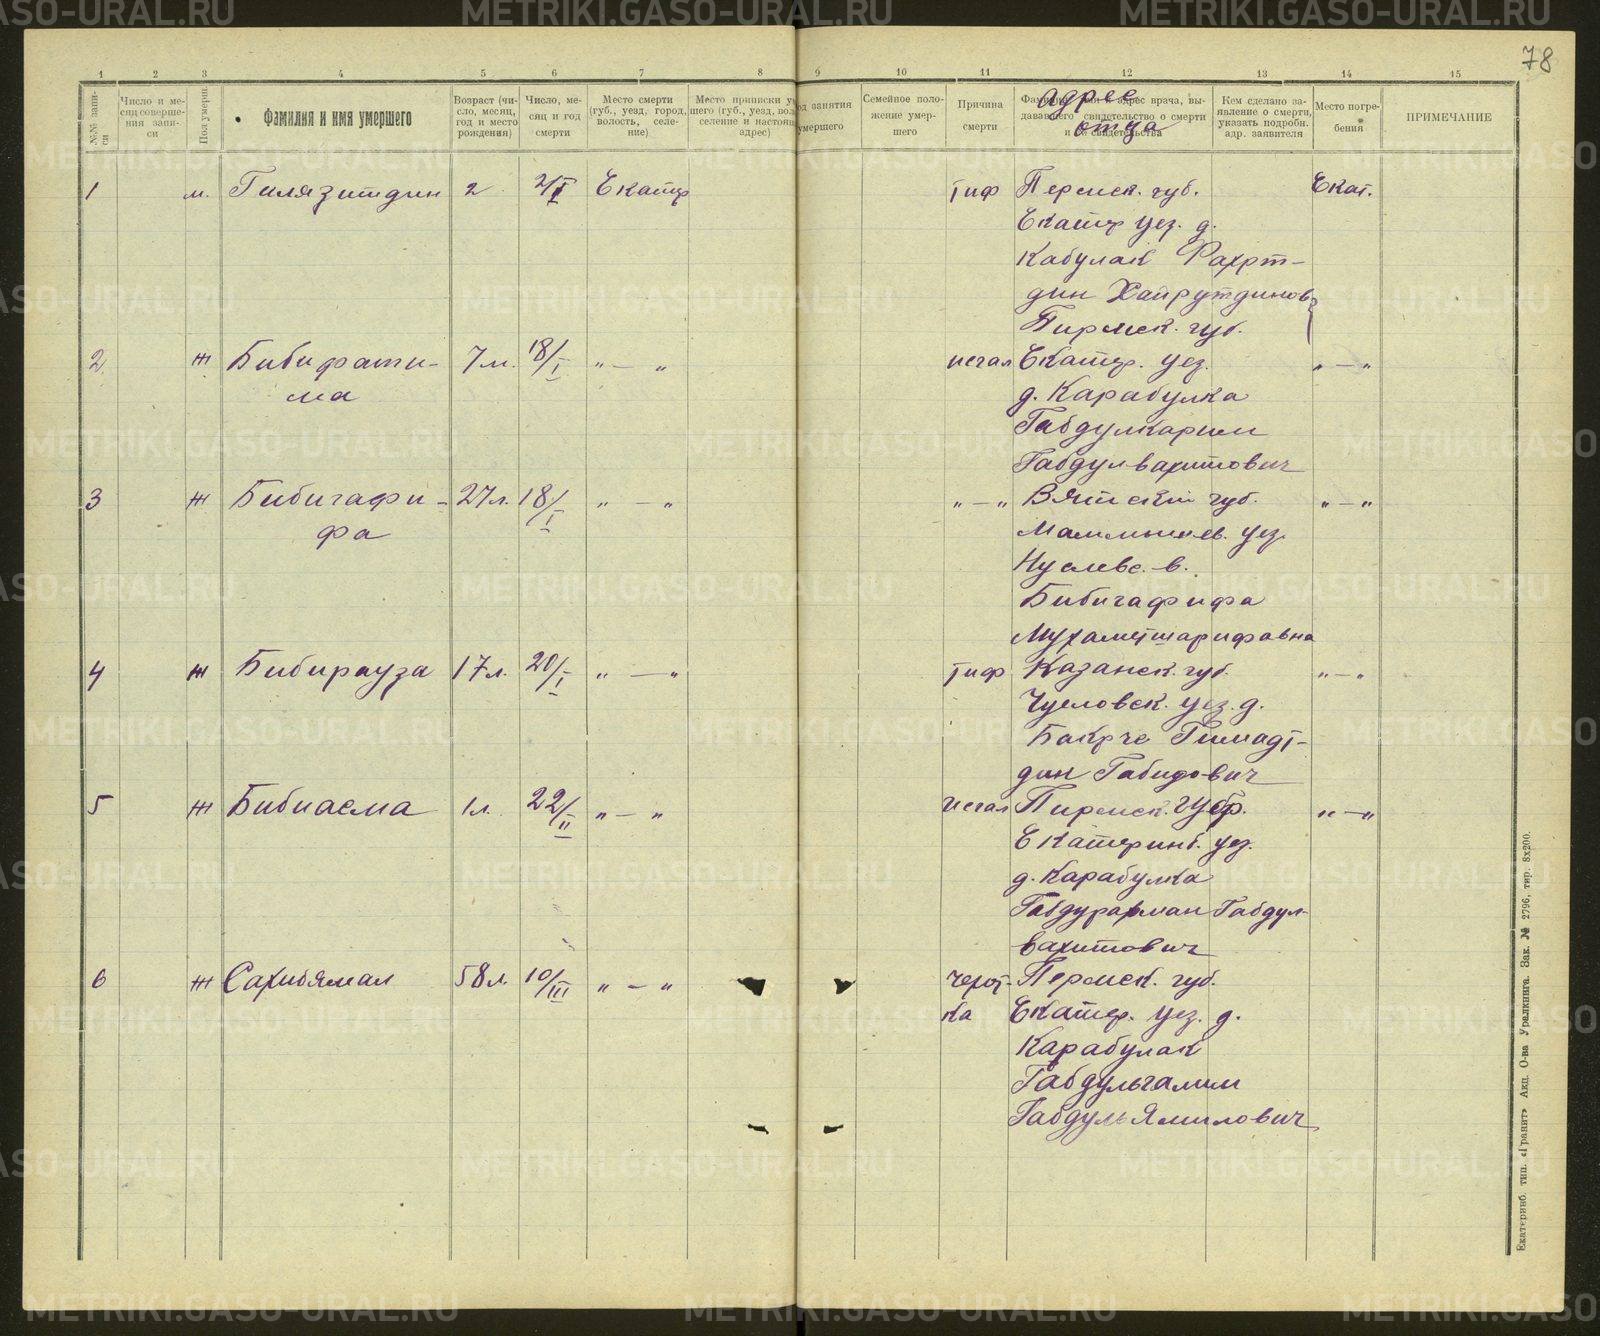 78
1 2 3 4 5 6 7 8 9 10 11 12 13 14 15
№№ записи
Число и месяц совершения записи
Пол умерш.
Фамилия и имя умершего
Возраст (число, месяц, год и место рождения)
Число, месяц и год смерти
Место смерти (губ., уезд, город, волость, селение)
Место приписки у
шего (губ., уезд, вол
селение и настоящ
адрес)
од занятия
умершего
Семейное положение умершего
Причина смерти
адрес врача, выдававшего свидетельство о смерти и свидетельства
адрес
отца
Кем сделано заявление о смерти, указать подробн. адр. заявителя
Место погребения
ПРИМЕЧАНИЕ
1 м. Гилязитдин 2 2/I Екатр тиф Пермск. губ. Екат.
Екатр уез. д.
Кабулак Рахрт-
дин Хайрутдинов
Пирмск. губ.
2 ж Бибифати- 7 м. 18/I „ — „ исгал Екатр. уез. „ — „
ма д. Карабулка
Габдулкарим
Габдулвахитович
3 ж Бибигафи- 27 л. 18/I „ — „ „ — „ Вятский губ. „ — „
фа уез.
в.
Бибигафифа
Мухаметшарифовна
4 ж Бибирауза 17 л. 20/I „ — „ тиф Казанск. губ. „ — „
уез. д.
Бакрче Гимадт-
дин Габидович
5 ж Бибиасма 1 л. 22/II „ — „ исгал Пирмск. губр. „ — „
Екатеринб. уез.
д. Карабулка
Габдурахман Габдул-
вахитович
6 ж Сахибямал 58 л. 10/III „ — „ чехот- Пермск. губ.
ка Екатер. уез. д.
Карабулак
Габдульгалим
ГабдульЯмилович
Екатеринб. тип. «Гранит» Акц. О-ва Уралкнига. Зак. № 2796, тир. 8х200.
METRIKI.GASO-URAL.RU